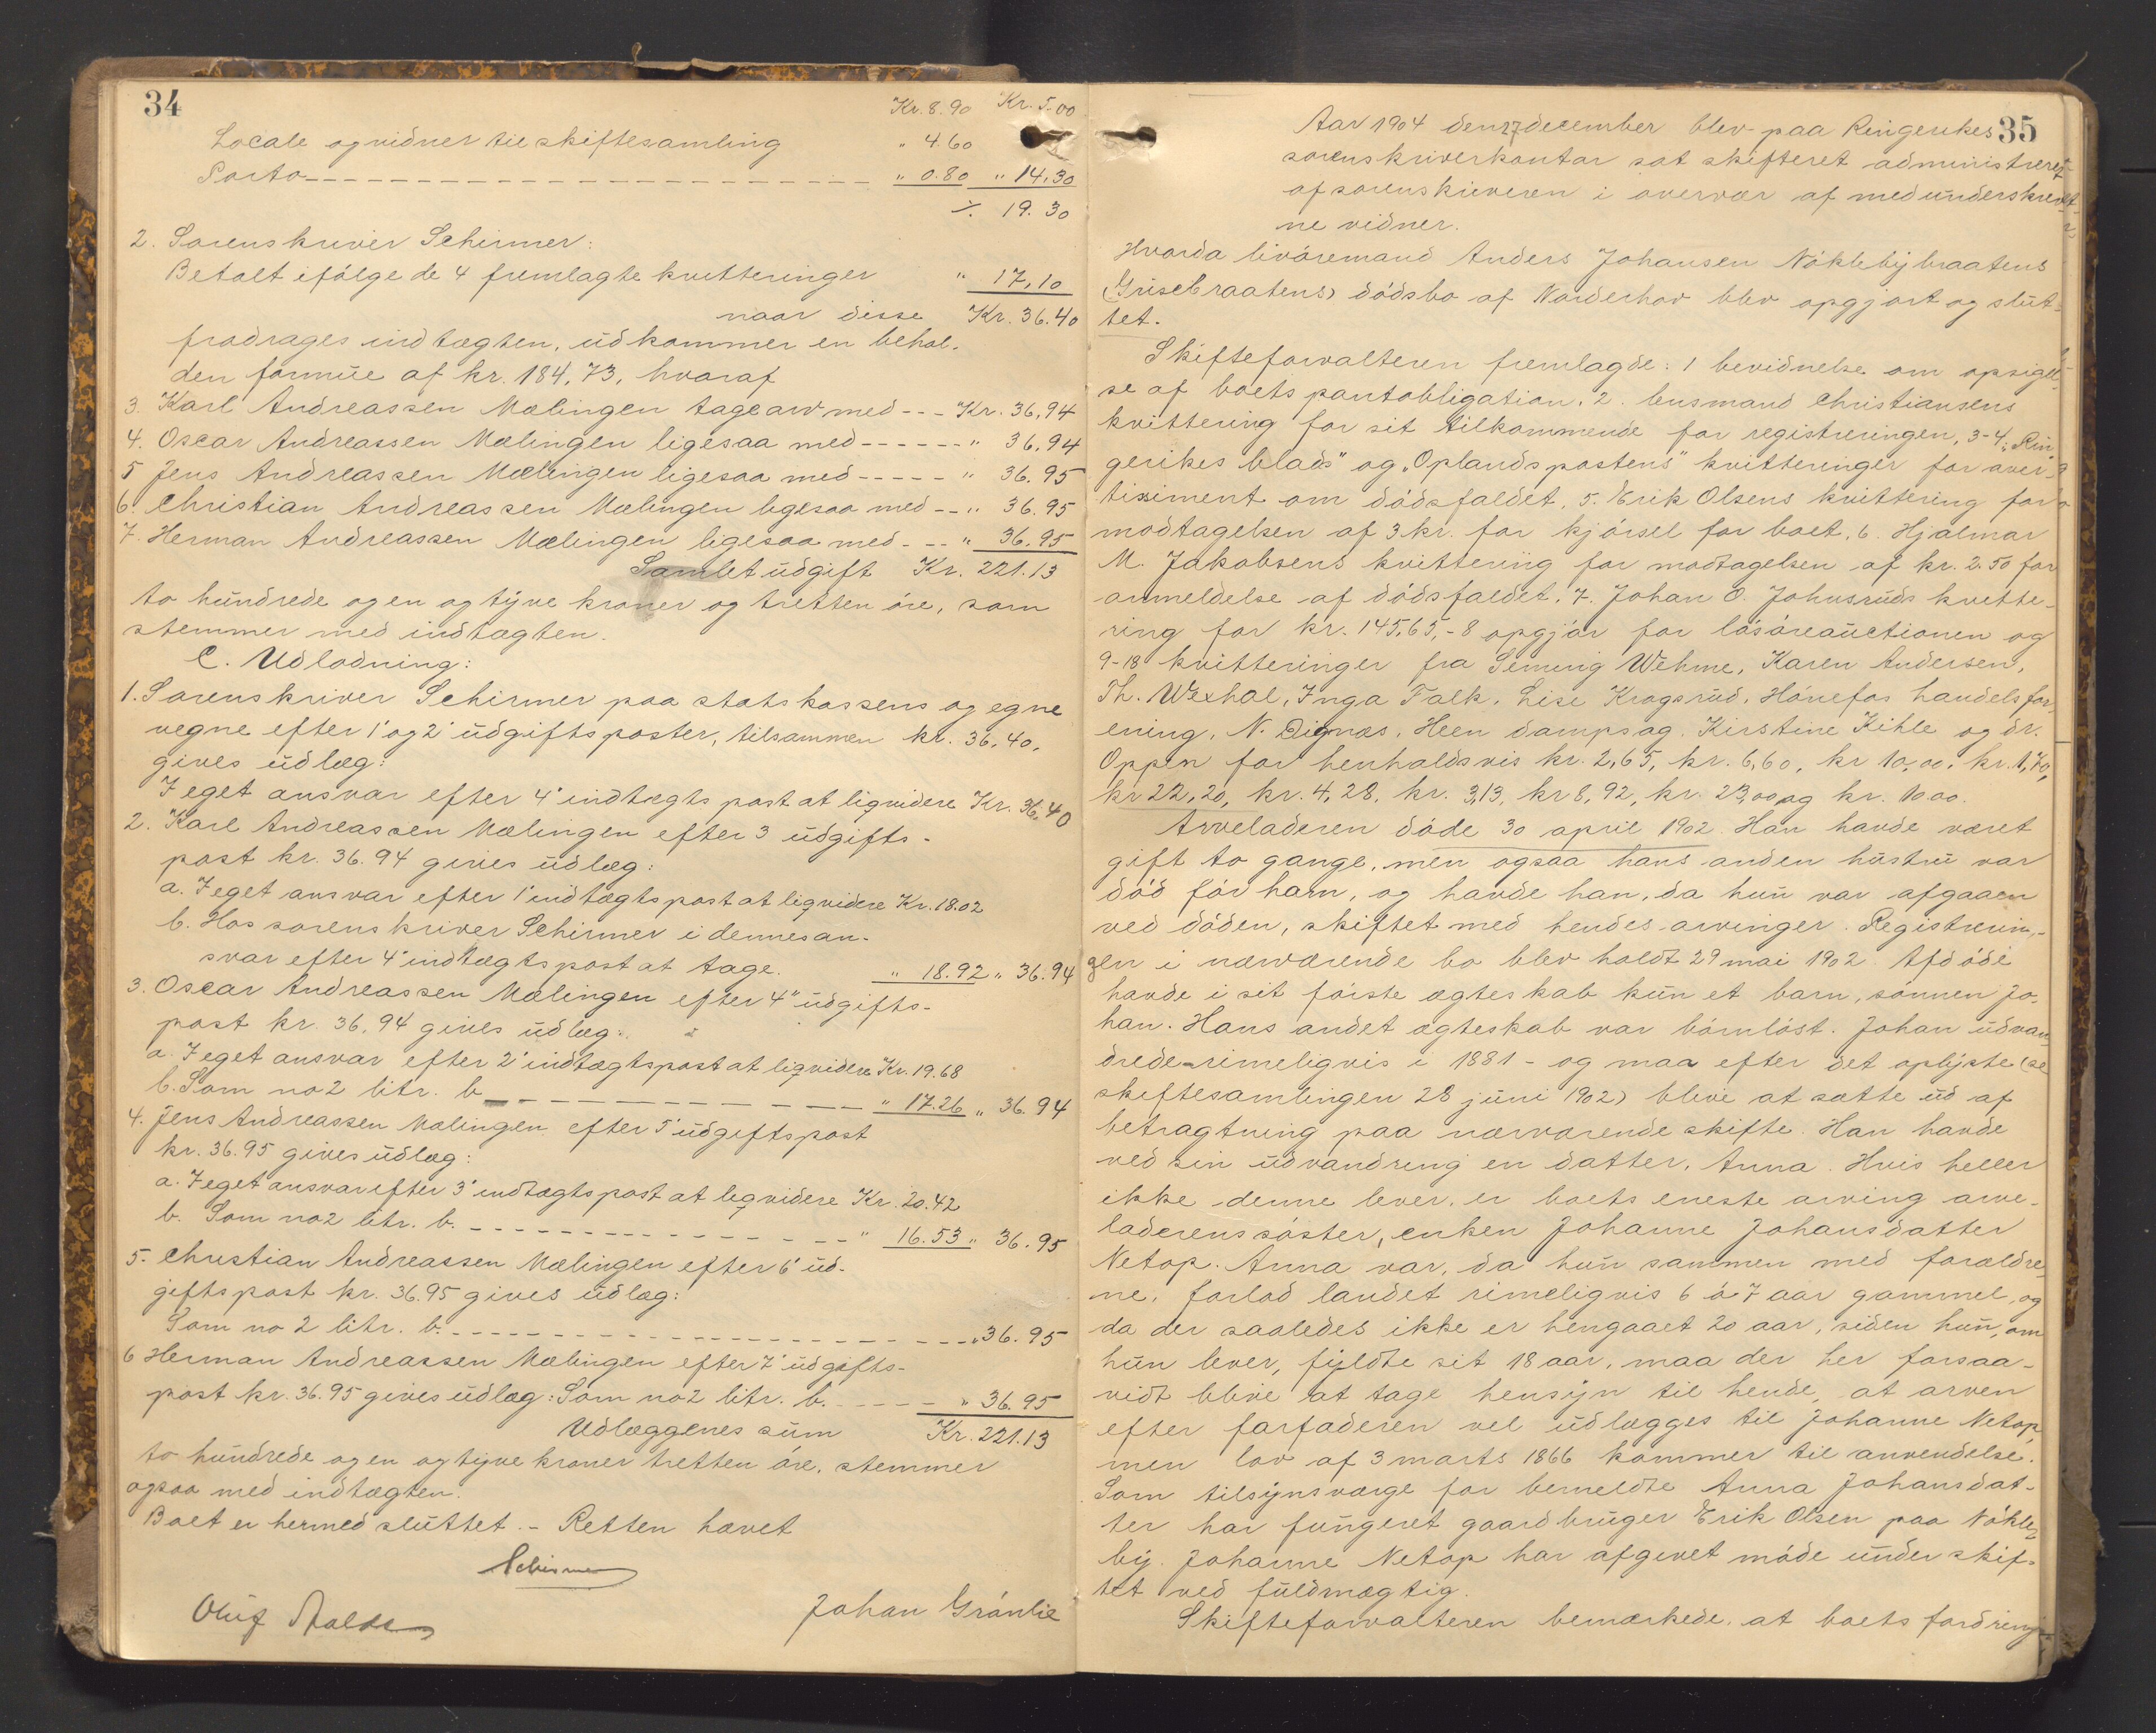 34
Kr. 8.90 Kr. 5.00
Locale og vidner til skiftesamling " 4.60
Porto " 0.80 " 14.30
./. 19.30
2. Sorenskriver Schirmer:
Betalt ifølge de 4 fremlagte kvitteringer " 17,10
naar disse Kr. 36.40
fradrages indtægten, udkommer en behol-
den formue af kr. 184,73, hvoraf
3. Karl Andreassen Mælingen tage arv med --- Kr. 36,94
4. Oscar Andreassen Mælingen ligesaa med ------ " 36.94
5 Jens Andreassen Mælingen ligesaa med ----- " 36.95
6. Christian Andreassen Mælingen ligesaa med --- " 36.95
7. Herman Andreassen Mælingen ligesaa med --- " 36.95
Samlet udgift Kr. 221.13
to hundrede og en og tyve kroner og tretten øre, som
stemmer med indtægten.
C. Udlodning:
1. Sorenskriver Schirmer paa statskassens og egne
vegne efter 1' og 2' udgiftsposter, tilsammen kr. 36.40.
gives udlæg:
I eget ansvar efter 4' indtægtspost at liqvidere Kr. 36.40
2. Karl Andreassen Mælingen efter 3 udgifts-
post kr. 36.94 gives udlæg:
a. I eget ansvar efter 1' indtægtspost at liqvidere Kr. 18.02
b. Hos sorenskriver Schirmer i dennes an-
svar efter 4' indtægtspost at tage. " 18.92 " 36.94
3. Oscar Andreassen Mælingen efter 4" udgifts-
post kr. 36.94 gives udlæg:
a. I eget ansvar efter 2' indtægtspost at liqvidere Kr. 19.68
b. Som no 2 litr. b " 17.26 " 36.94
4. Jens Andreassen Mælingen efter 5' udgiftspost
kr. 36.95 gives udlæg:
a. I eget ansvar efter 3' indtægtspost at liqvidere Kr. 20.42
b. Som no 2 litr. b. " 16.53 " 36.95
5. Christian Andreassen Mælingen efter 6' ud-
giftspost kr. 36.95 gives udlæg:
Som no 2 litr. b. " 36.95
6 Herman Andreassen Mælingen efter 7' udgifts-
post kr. 36.95 gives udlæg: Som no 2 litr. b. " 36.95
Udlæggenes sum Kr. 221.13
to hundrede og en og tyve kroner tretten øre, stemmer
ogsaa med indtægten.
Boet er hermed sluttet. - Retten hævet
Schirmer
Oluf Johan Grønlie
35
Aar 1904 den 27 december blev paa Ringerikes
sorenskriverkontor sat skifteret administreret
af sorenskriveren i overvær af medunderskrevet-
ne vidner.
Hvorda livøremand Anders Johansen Nøklebybraatens
(Grisebraatens) dødsbo af Norderhov blev opgjort og slut-
tet.
Skifteforvalteren fremlagde: 1 bevidnelse om opsigel-
se af boets pantobligation, 2. lensmand Christiansens
kvittering for sit tilkommende for registreringen, 3-4: "Rin-
gerikes blads" og "Oplandspostens" kvitteringer for aver-
tissiment om dødsfaldet, 5. Erik Olsens kvittering for
modtagelsen af 3 kr. for kjørsel for boet, 6. Hjalmar
M. Jakobsens kvittering for modtagelsen af kr. 2.50 for
anmeldelse af dødsfaldet. 7. Johan O. Johnsruds kvitte-
ring for kr. 145,65, - 8 opgjør for løsøreauctionen og
9-18 kvitteringer fra Seming Wehme, Karen Andersen,
Th. Wexhal, Inga Falk, Lise Krogsrud, Hønefos handelsfor-
ening, N. Dignæs, Heen dampsag, Kirstine Kihle og dr.
Oppen for henholdsvis kr. 2,65, kr. 6,60, kr 10,00, kr. 1,70,
kr 22,20, kr. 4,28, kr. 3,13, kr 8,92, kr. 23,00 og kr. 10.00.
Arveladeren døde 30 april 1902. Han havde været
gift to gange, men ogsaa hans anden hustru var
død før ham, og havde han, da hun var afgaaen
ved døden, skiftet med hendes arvinger. Registrerin-
gen i nærværende bo blev holdt 29 mai 1902. Afdøde
havde i sit første ægteskab kun et barn, sønnen Jo-
han. Hans andet ægteskab var børnløst. Johan udvan-
drede - rimeligvis i 1881 - og maa efter det oplyste (se
skiftesamlingen 28 juni 1902) blive at sætte ud af
betragtning paa nærværende skifte. Han havde
ved sin udvandring en datter, Anna. Hvis heller
ikke denne lever, er boets eneste arving arve-
laderens søster, enken Johanne Johansdatter
Netop. Anna var, da hun sammen med forældre-
ne, forlod landet rimeligvis 6 á 7 aar gammel, og
da der saaledes ikke er hengaaet 20 aar, siden hun, om
hun lever, fyldte sit 18 aar, maa der her forsaa-
vidt blive at tage hensyn til hende, at arven
efter farfaderen vel udlægges til Johanne Netop,
men lov af 3 marts 1866 kommer til anvendelse.
Som tilsynsværge for bemeldte Anna Johansdat-
ter har fungeret gaardbruger Erik Olsen paa Nøkle-
by. Johanne Netop har afgivet møde under skif-
tet ved fuldmægtig.
Skifteforvalteren bemærkede, at boets fordring